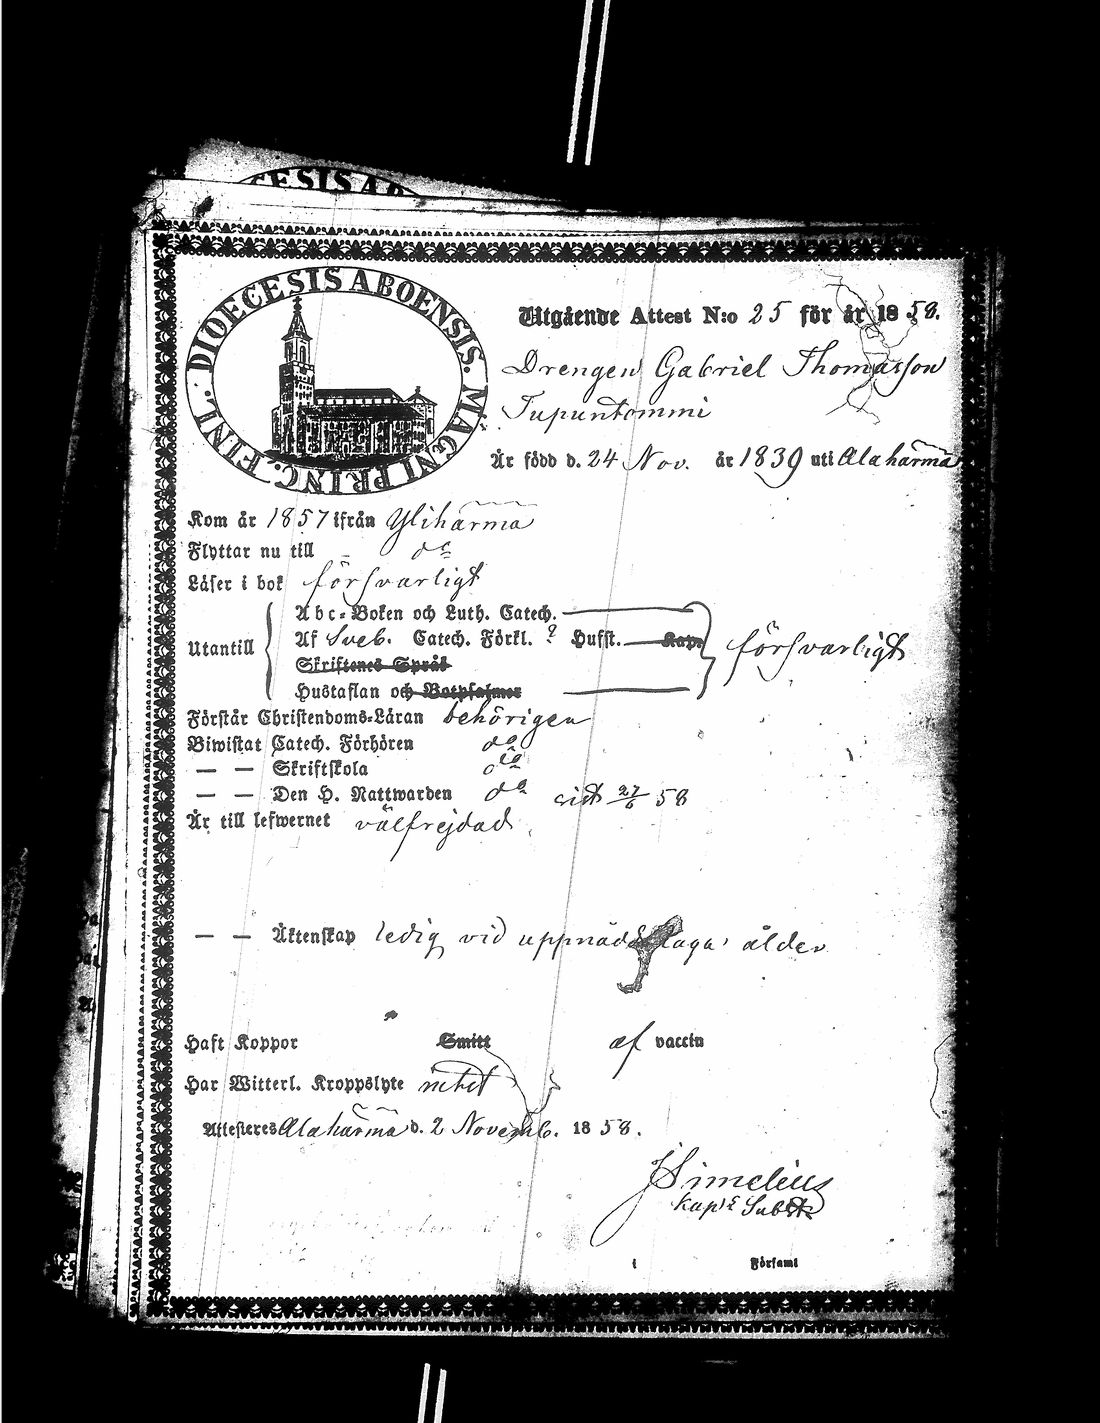 CESIS AB
DIOECESIS ABOENSIS. MAGNI PRINC. FINL.
Utgående Attest N:o 25 för år 1858.
Drengen Gabriel Thomasson
Tupuntommi
Är född d. 24 Nov. år 1839 uti Alahärmä
Kom år 1857 ifrån Ylihärmä
Flyttar nu till - do
Läser i bok försvarligt
Abc-Boken och Luth. Catech.
Utantill Af Sveb. Catech. Förkl. ? Husst. Kap. försvarligt
Skriftenes Språk
Hustaflan och Botpsalmer
Förstår Christendoms-Läran behörigen
Biwistat Catech. Förhören do
— — Skriftskola do
— — Den H. Nattwarden do sist 27/6 58
Är till lefwernet välfrejdad
— — Äktenskap ledig vid uppnådd laga ålder
Haft Koppor Smitt af vaccin
Har Witterl. Kroppslyte intet
Attesteras Alahärmä d. 2 Novemb. 1858.
JSimelius
Kap:s Subst
i Församl